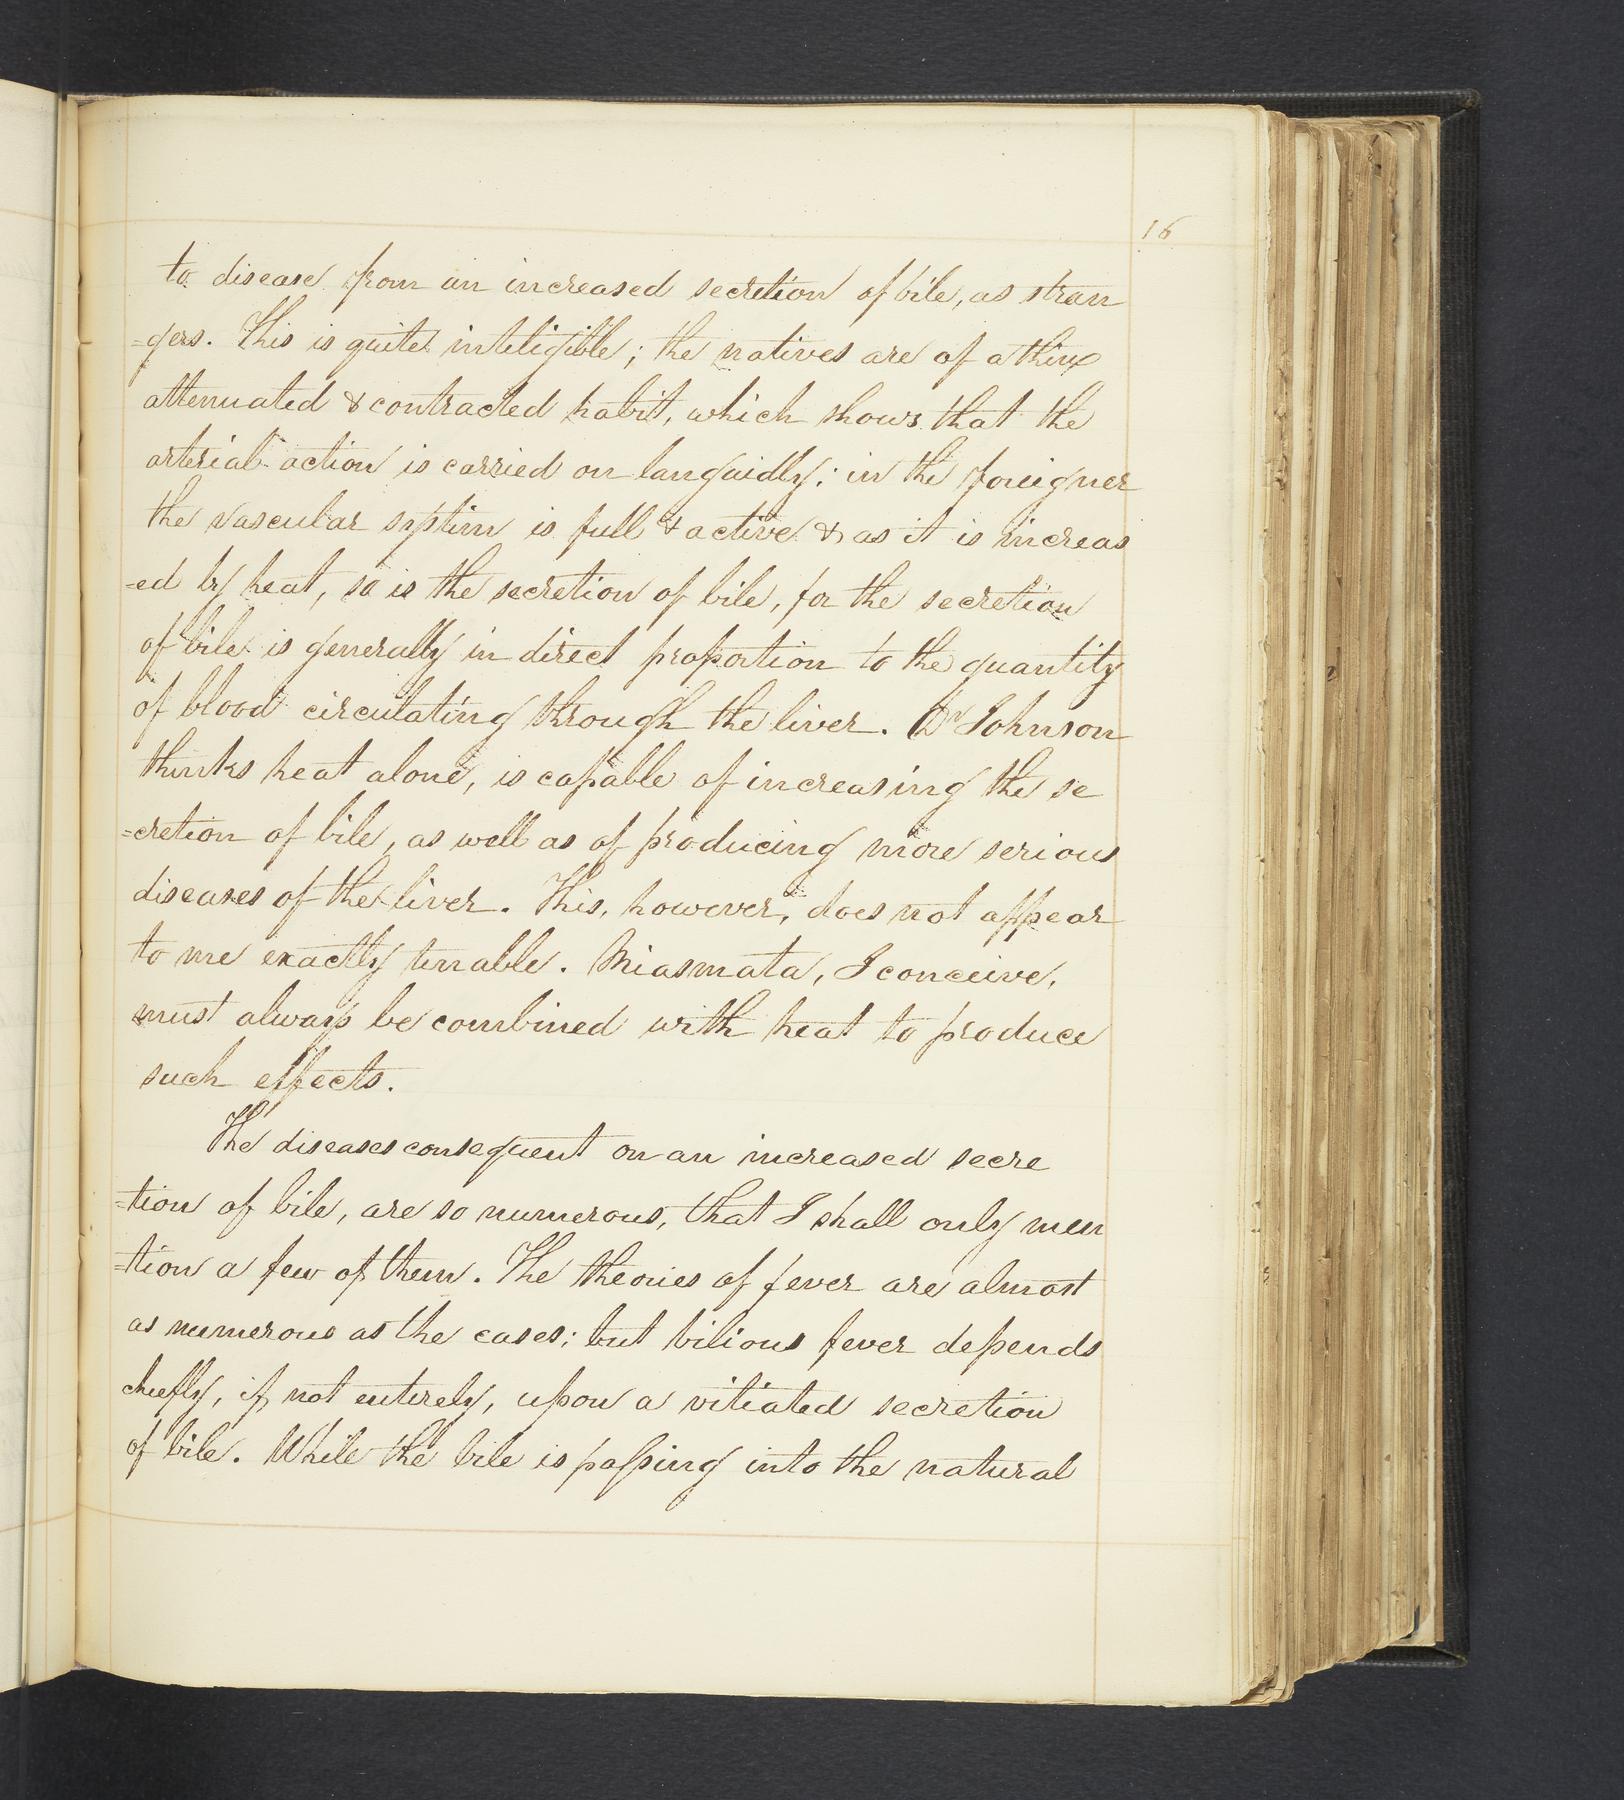 16
to disease from an increased secretion of bile, as stran
=gers. This is quite inteligible; the natives are of a thin
attenuated & contracted habit, which shows that the
arterial action is carried on languidly; in the foreigner
the vascular system is full & active & as it is increas
=ed by heat, so is the secretion of bile, for the secretion
of bile is generally in direct proportion to the quantity
of blood circulating through the liver. Dr Johnson
thinks heat alone, is capable of increasing the se
=cretion of bile, as well as of producing more serious
diseases of the liver. This, however, does not appear
to me exactly tenable. Miasmata, I conceive,
must always be combined with heat to produce
such effects.
The diseases consequent on an increased secre
=tion of bile, are so numerous, that I shall only men
=tion a few of them. The theories of fever are almost
as numerous as the cases; but bilious fever depends
chiefly, if not entirely, upon a vitiated secretion
of bile. While the bile is passing into the natural